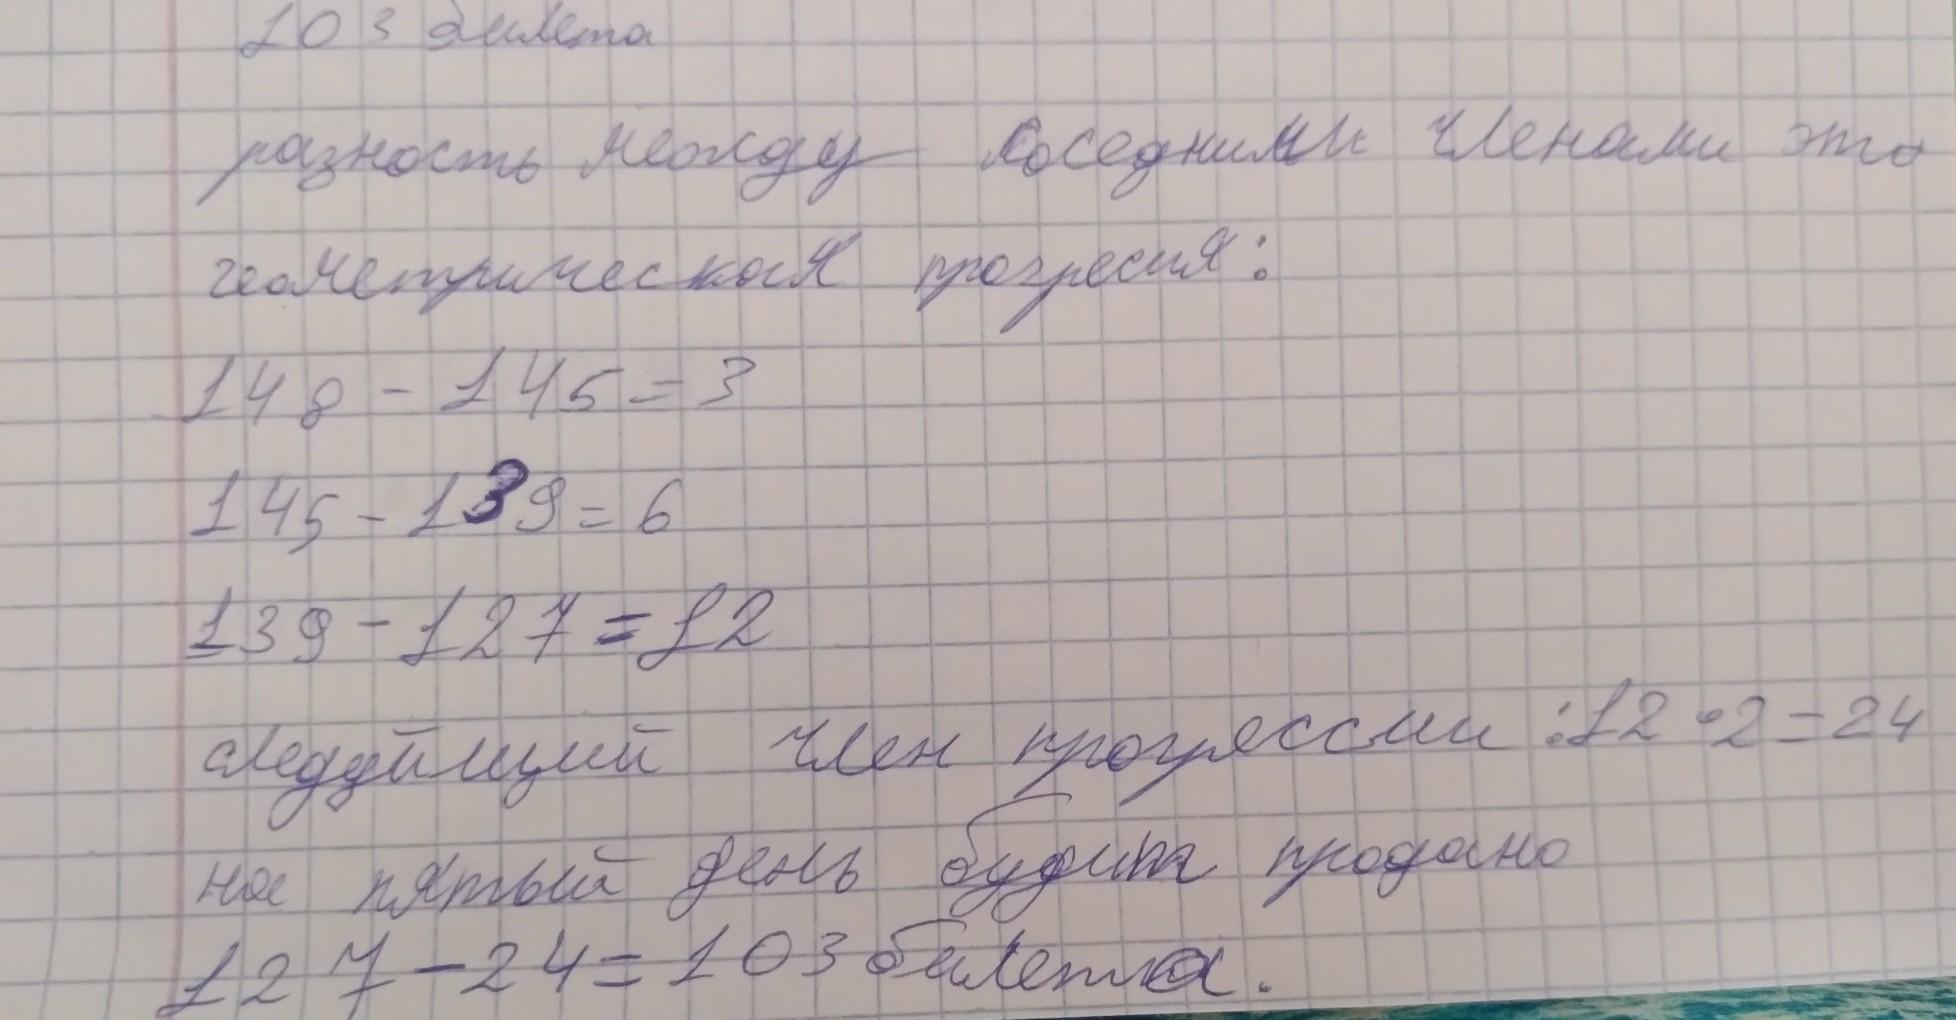 103 билета
разность между соседними членами это
геометрическая прогресия:
148 - 145 = 3
145 - 139 = 6
139 - 127 = 12
следуйщий член прогрессии : 12 • 2 = 24
на пятый день будит продано
127 - 24 = 103 билета.